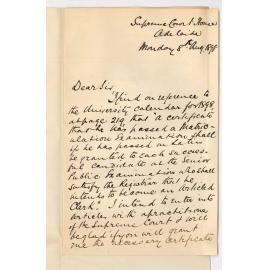 Supreme Court House
Adelaide
Monday 8th Aug 1898
Dear Sir
I find on reference to
the University Calendar for 1898,
at page 219 that "a certificate
that he has passed a Matric-
ulation Examination shall
if he has passed in Latin
be granted to each success-
ful candidate at the Senior
Public Examination who shall
satisfy the Registrar that he
intends to become an Articled
Clerk." I intend to enter into
articles with a practitioner
of the Supreme Court & will
be glad if you will grant
me the necessary certificate